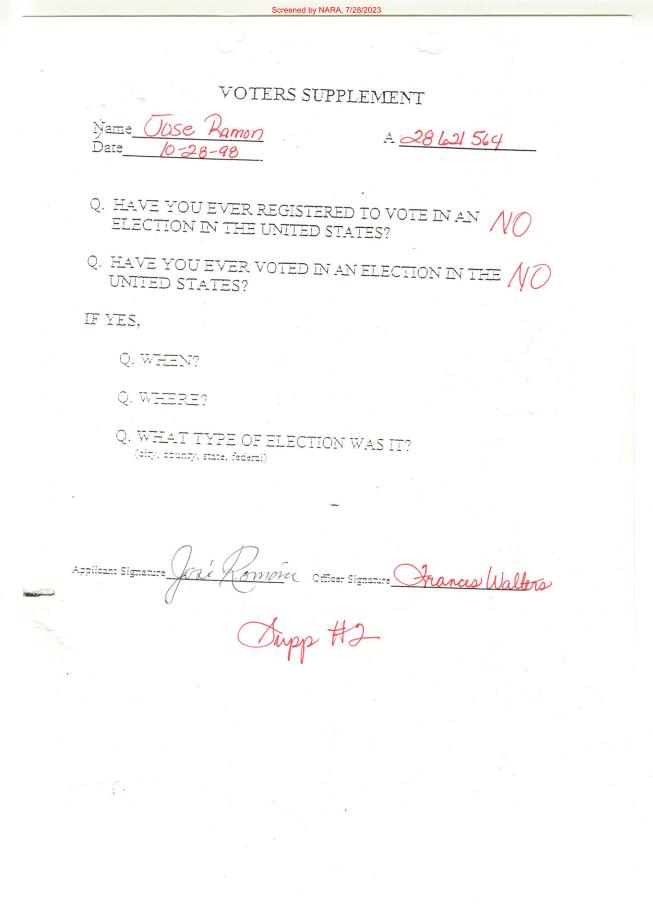 Screened by NARA, 7/28/2023
VOTERS SUPPLEMENT
Name Jose Ramon A 28 621 564
Date 10-28-98
Q. HAVE YOU EVER REGISTERED TO VOTE IN AN NO
ELECTION IN THE UNITED STATES?
Q. HAVE YOU EVER VOTED IN AN ELECTION IN THE NO
UNITED STATES?
IF YES,
Q. WHEN?
Q. WHERE?
Q. WHAT TYPE OF ELECTION WAS IT?
(city, county, state, federal)
Applicant Signature José Ramón Officer Signature Frances Walters
Supp #2